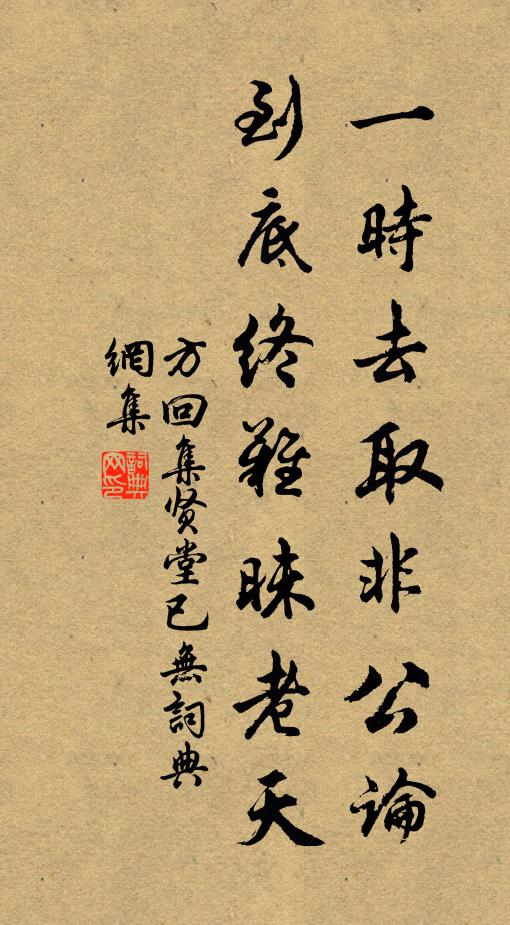 一時去取非公論
到底終難昧老天
方回集贤堂已無詞典
網集
詞典網印